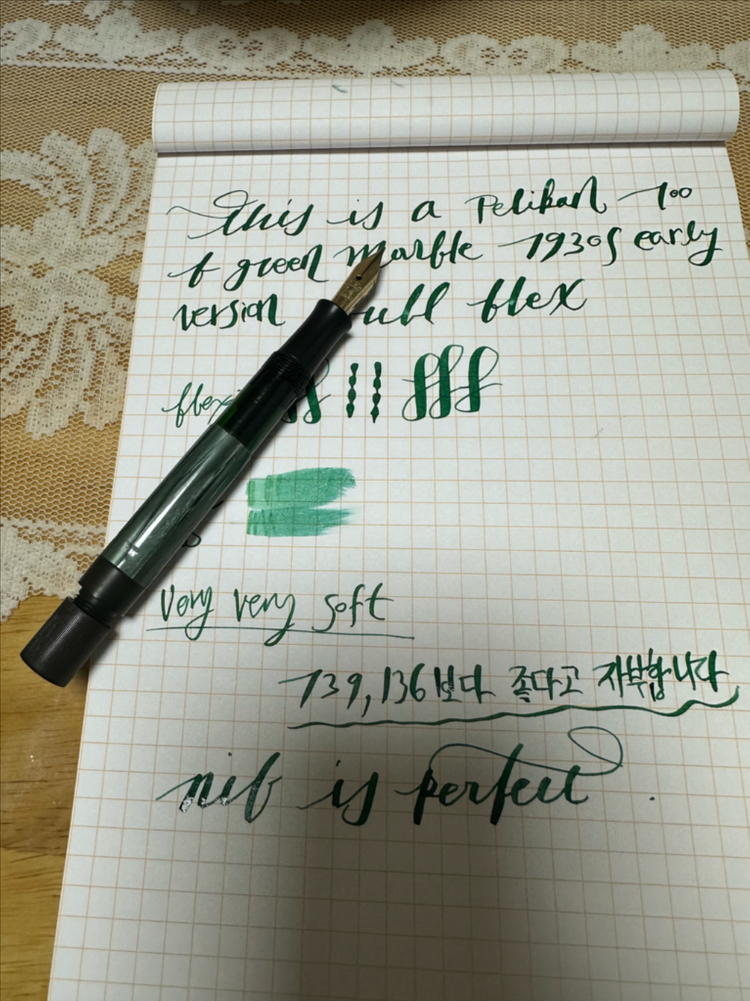 this is a Pelikan 100
of green marble 1930s early
version full flex
flex
very very soft
139, 136보다 좋다고 자부합니다
nib is perfect.